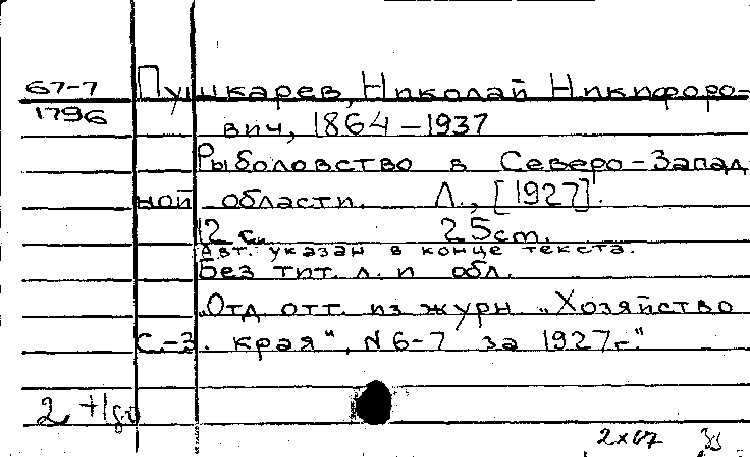 67-7 Пушкарев, Николай Никифоро-
1796 вич, 1864-1937
Рыболовство в Северо-Запад
ной области. Л., [1927].
12 с. 25 cm.
Авт. указан в конце текста.
Без тит. л. и обл.
"Отд. отт. из журн. "Хозяйство
С.-З. края", N 6-7 за 1927г."
2
2x67